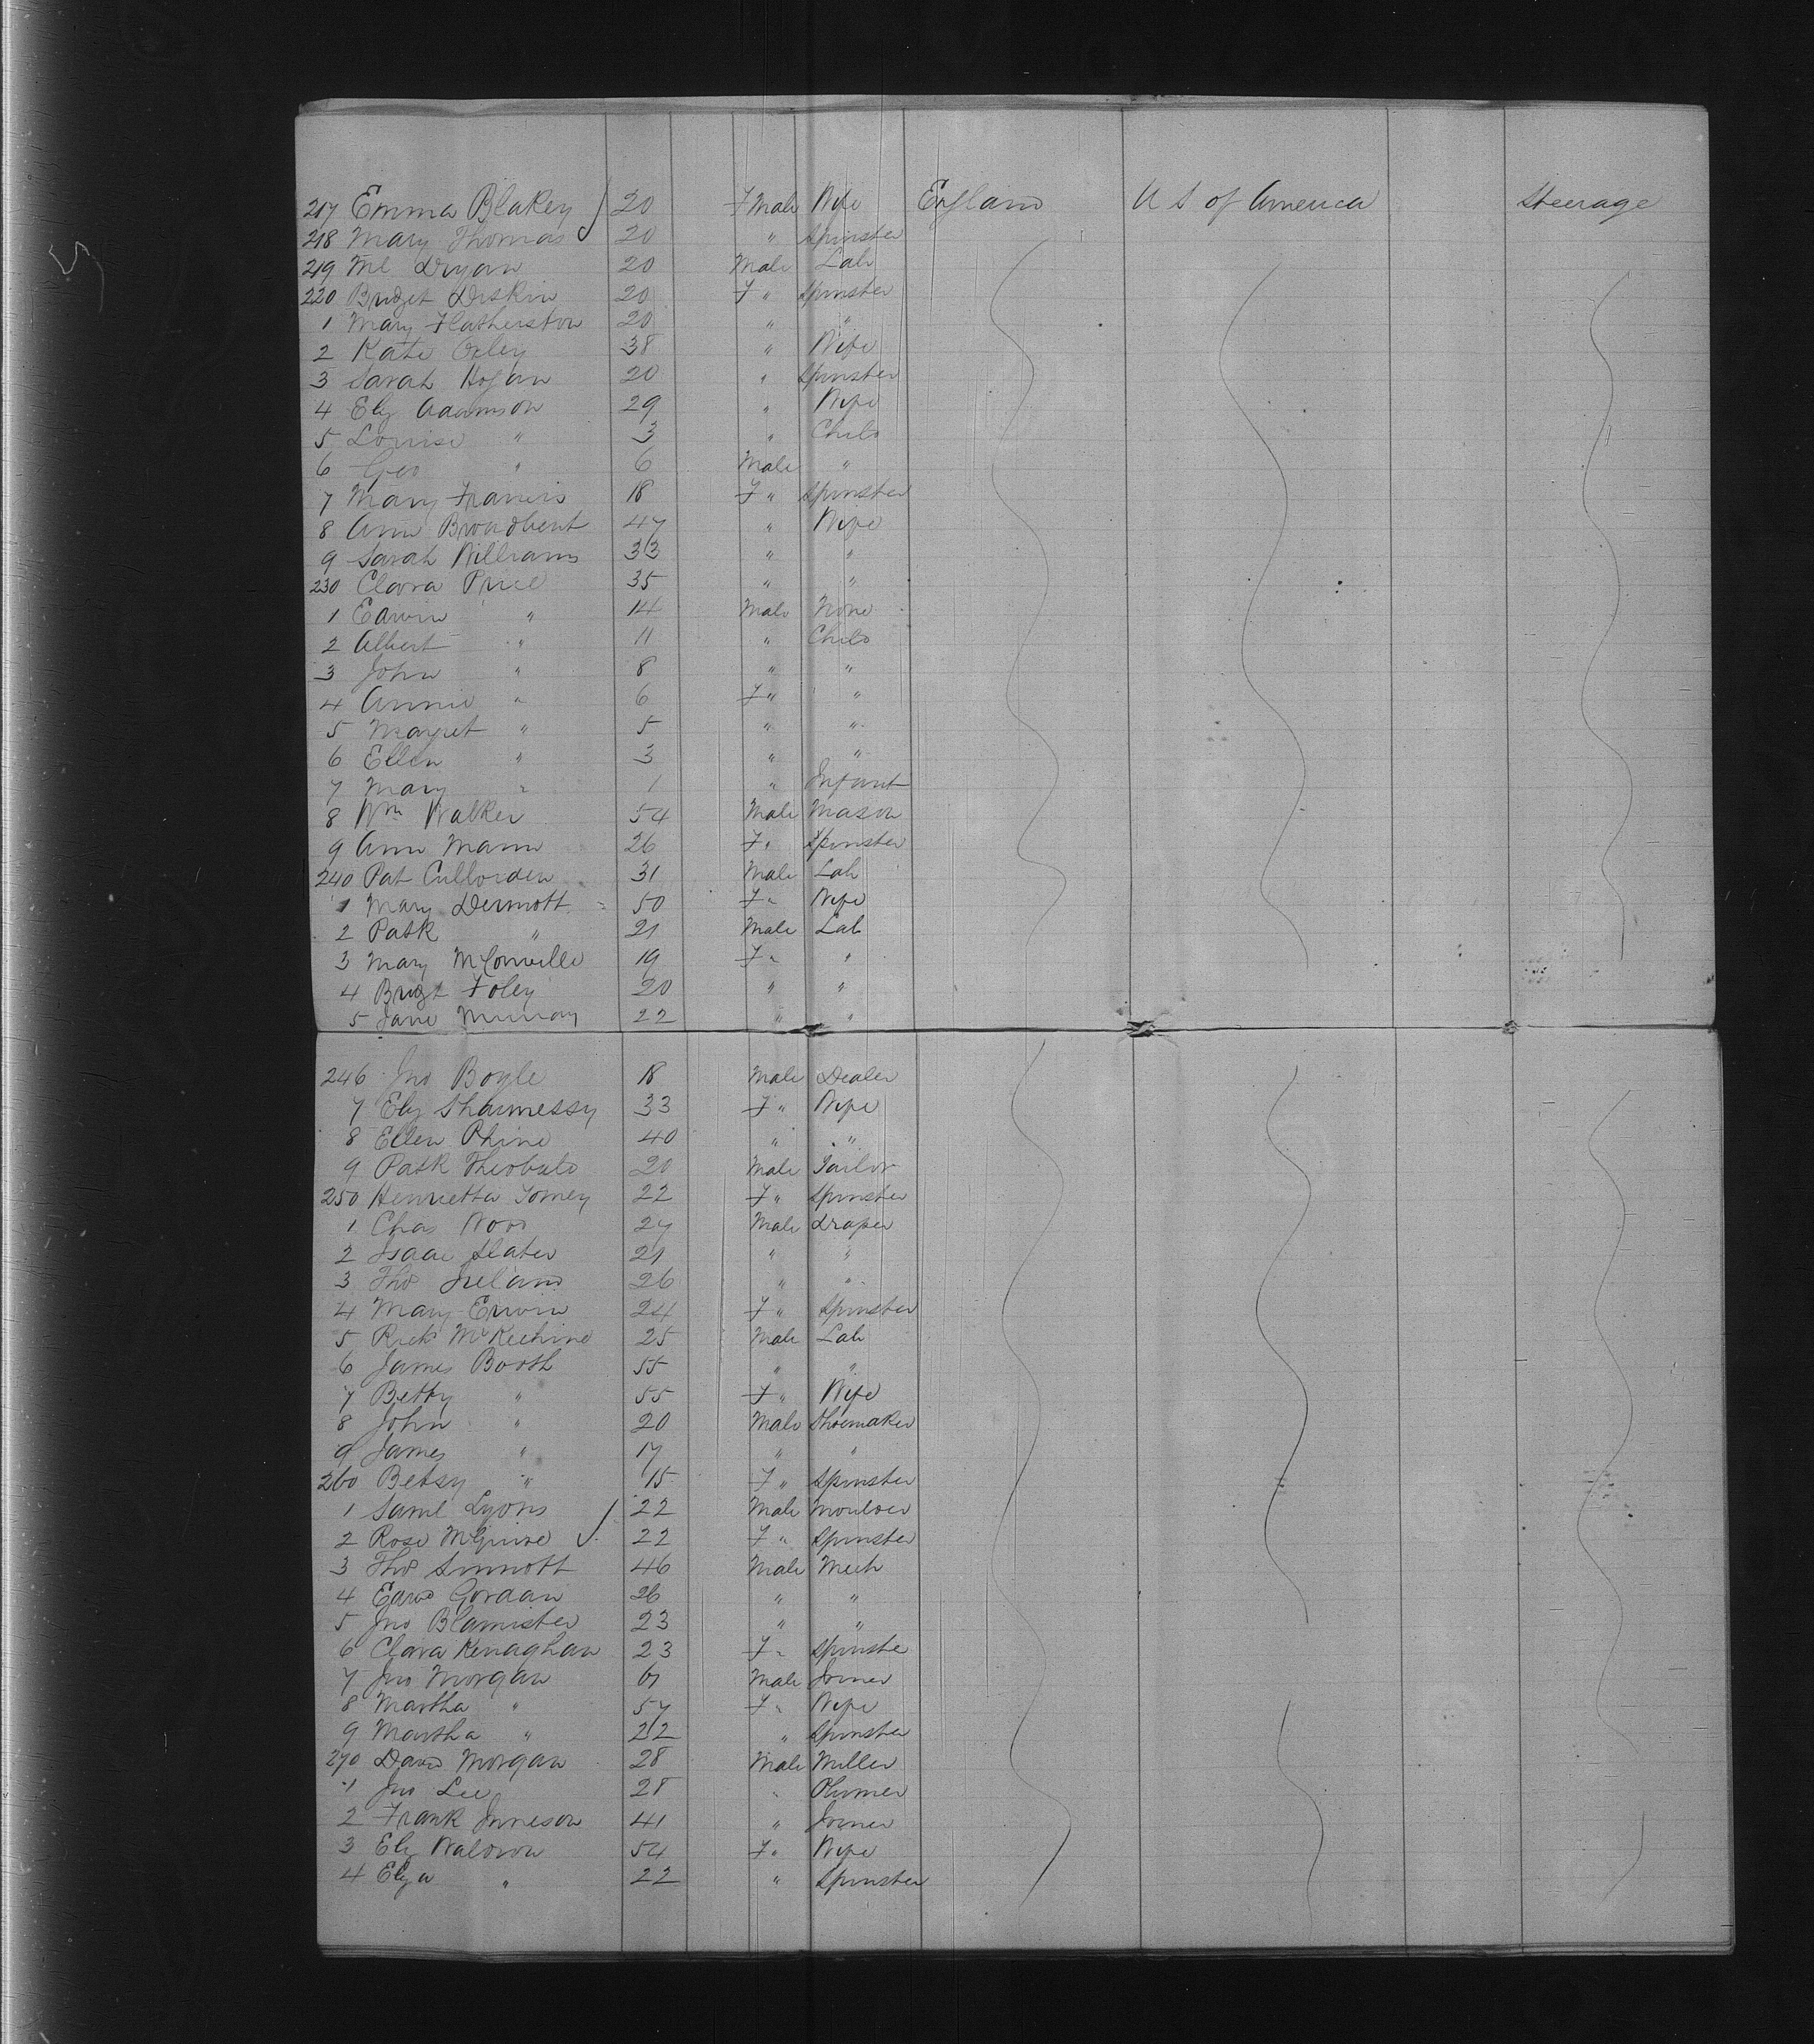 217 Emma Blakey 20 F Male Wife England U S of America Steerage
218 Mary Thomas 20 " Spinster
219 Ml Dryan 20 Male Lab
220 Bridget Diskin 20 F " Spinster
1 Mary Flatherston 20 " "
2 Kate Oxley 38 " Wife
3 Sarah Hogan 20 " Spinster
4 Elz Adamson 29 " Wife
5 Louise " 3 " Child
6 Geo " 6 Male "
7 Mary Francis 18 F " Spinster
8 Ann Broadbent 47 " Wife
9 Sarah Williams 33 " "
230 Clara Price 35 " "
1 Edwin " 14 Male None
2 Albert " 11 " Child
3 John " 8 " "
4 Annie " 6 F " "
5 Margret " 5 " "
6 Ellen " 3 " "
7 Mary " 1 " Infant
8 Wm Walker 54 Male Mason
9 Ann Mann 26 F " Spinster
240 Pat 31 Male Lab
1 Mary Dermott 50 F " Wife
2 Patk " 21 Male Lab
3 Mary McConville 19 F " "
4 Bridgt Foley 20 " "
5 Jane Murray 22 " "
246 Jno Boyle 18 Male Dealer
7 Elz Shaunessy 33 F " Wife
8 Ellen Rhine 40 " "
9 Patk Theobald 20 Male Tailor
250 Henrietta Tomey 22 F " Spinster
1 Chas 27 Male Draper
2 Isaac Slater 21 " "
3 Thos Ireland 26 " "
4 Mary Erwin 24 F " Spinster
5 Richd McKechine 25 Male Lab
6 James Booth 55 " "
7 Betty " 55 F " Wife
8 John " 20 Male Shoemaker
9 James " 17 " "
260 Betsy " 15 F " Spinster
1 Saml Lyons 22 Male Moulder
2 Rose McGuire 22 F " Spinster
3 Thos Sinnott 46 Male Mech
4 Edwd Gordan 26 " "
5 Jno Blamister 23 " "
6 Clara Kenaghan 23 F " Spinster
7 Jno Morgan 61 Male Joiner
8 Martha " 57 F " Wife
9 Martha " 22 " Spinster
270 David Morgan 28 Male Miller
1 Jno Lee 28 " Plumer
2 Frank Jnneson 41 " Joiner
3 Elz Waldron 54 F " Wife
4 Elza " 22 " Spinster